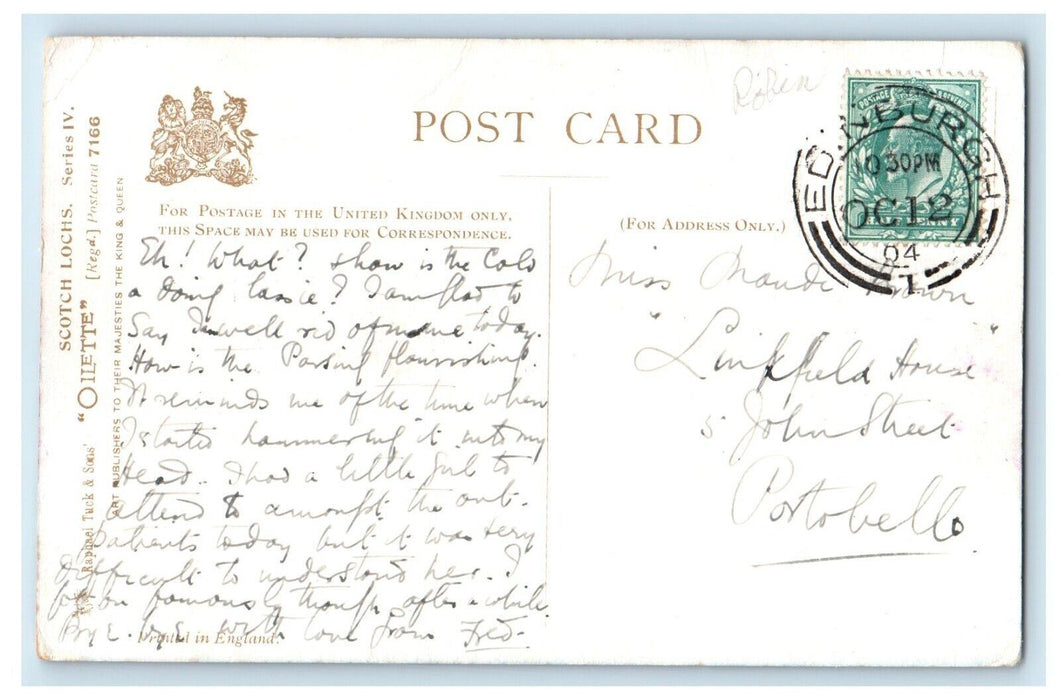 Robin
POST CARD
FOR POSTAGE IN THE UNITED KINGDOM ONLY,
THIS SPACE MAY BE USED FOR CORRESPONDENCE.
(FOR ADDRESS ONLY.)
POSTAGE REVENUE
HALF PENNY
EDINBURGH
10 30PM
OC 12
04
Eh! What? & how is the Cold
a doing lassie? I am glad to
Say I'm well rid of mine today.
How is the Parsing flourishing.
It reminds me of the time when
I started hammering it into my
Head. I had a little girl to
attend to amongst the out-
patients today but it was very
difficult to understand her. I
got on famously though after a while.
Bye bye with love from Fred-
Miss Maude Brown
"Linkfield House"
5 John Street
Portobello
SCOTCH LOCHS. Series IV.
"OILETTE" [Regd.] Postcard 7166
Raphael Tuck & Sons'
ART PUBLISHERS TO THEIR MAJESTIES THE KING & QUEEN
Printed in England.